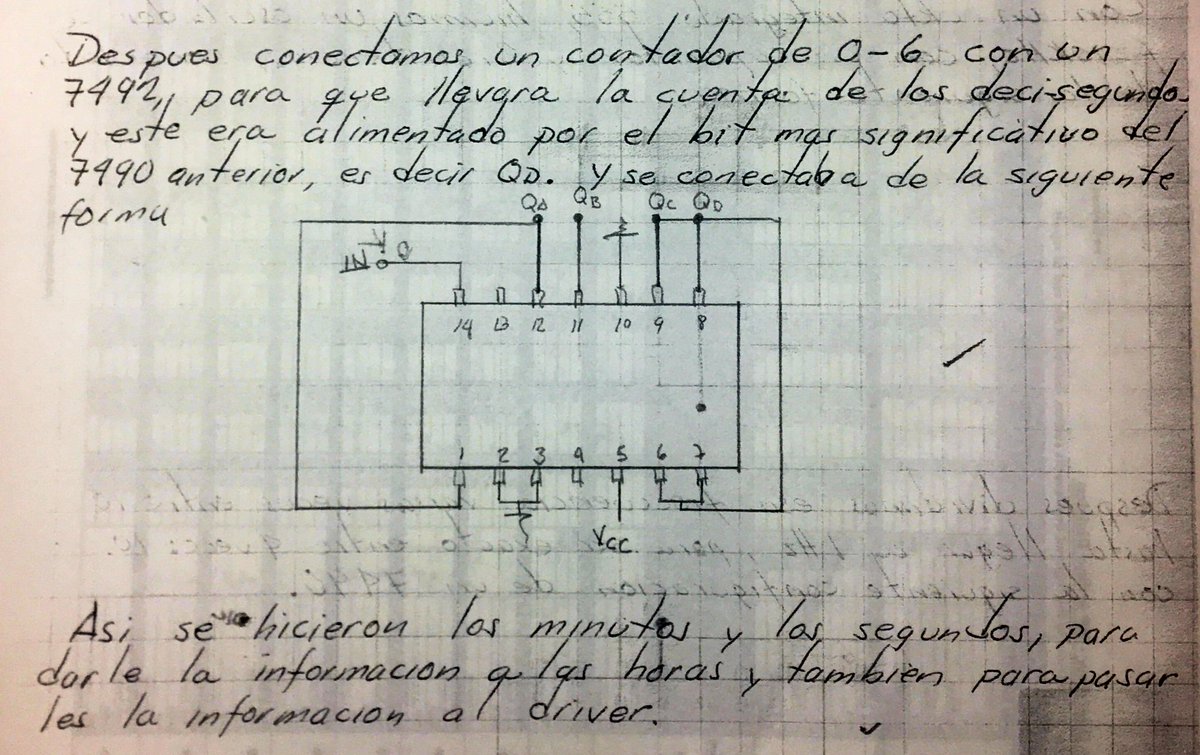 Despues conectamos un contador de 0-6 con un
7492, para que llevara la cuenta de los deci-segundos
y este era alimentado por el bit mas significativo del
7490 anterior, es decir QD. y se conectaba de la siguiente
forma
QA QB QC QD
IN
14 13 12 11 10 9 8
1 2 3 4 5 6 7
VCC
Asi se hicieron los minutos y los segundos, para
darle la informacion a las horas y tambien para pasar
les la informacion al driver.